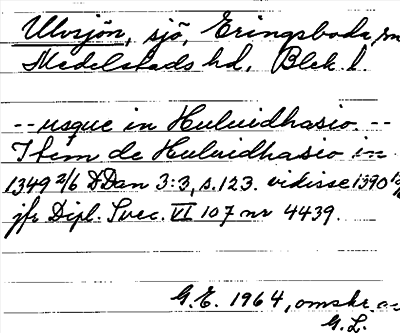 Ulvsjön, sjö, Eringsboda sn
Medelstads hd, Blek. l.
-- usque in Huluidhasio. --
Item de Huluidhasio in
1349 2/6 DDan 3:3, s. 123. vidisse 1390
jfr Dipl. Svec. VI 107 nr 4439.
G.E. 1964, omskr. av
G.L.